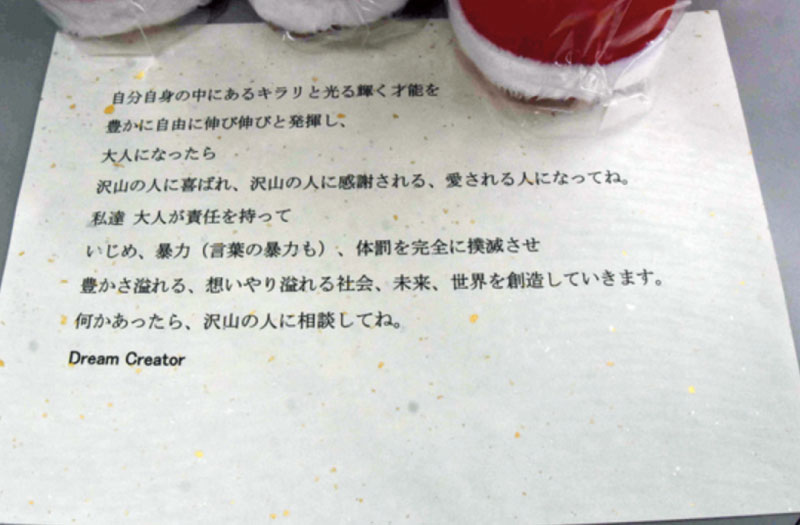 自分自身の中にあるキラリと光る輝く才能を
豊かに自由に伸び伸びと発揮し、
大人になったら
沢山の人に喜ばれ、沢山の人に感謝される、愛される人になってね。
私達 大人が責任を持って
いじめ、暴力（言葉の暴力も）、体罰を完全に撲滅させ
豊かさ溢れる、想いやり溢れる社会、未来、世界を創造していきます。
何かあったら、沢山の人に相談してね。
Dream Creator